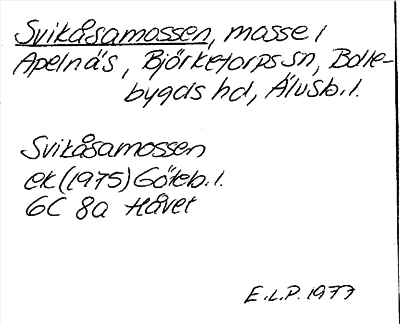 Svikåsamossen, mosse i
Apelnäs, Björketorps sn, Bolle-
bygds hd, Älvsb.l.
Svikåsamossen
ek (1975) Göteb.l.
6C 8a Håvet
E.L.P. 1977